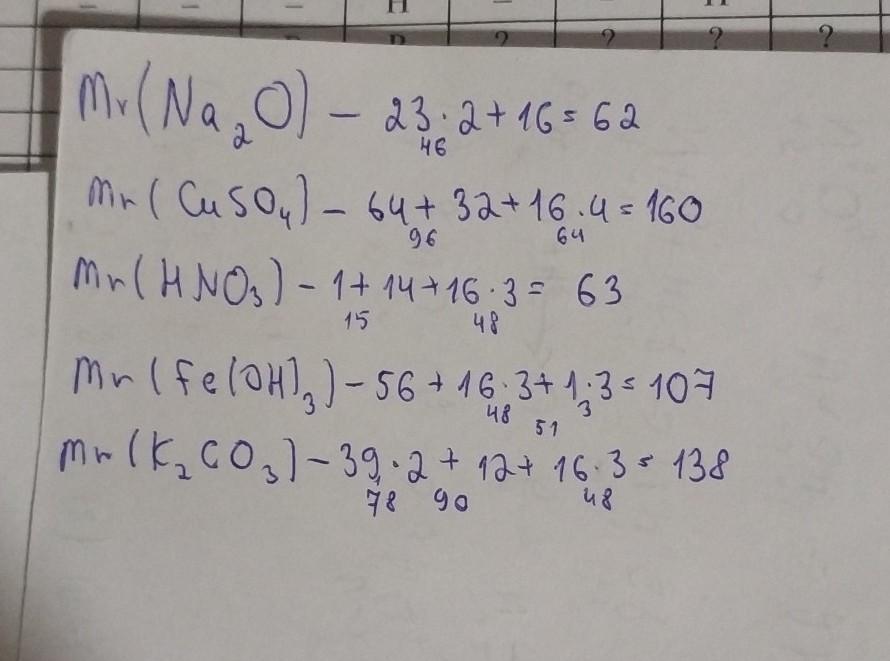 – – – H – – H
D ? ? ? ?
Mr(Na₂O) – 23·2+16=62
46
Mr(CuSO₄) – 64+32+16·4=160
96 64
Mr(HNO₃) – 1+14+16·3= 63
15 48
Mr(Fe(OH)₃) – 56+16·3+1·3=107
48 51 3
Mr(K₂CO₃) – 39·2+12+16·3=138
78 90 48